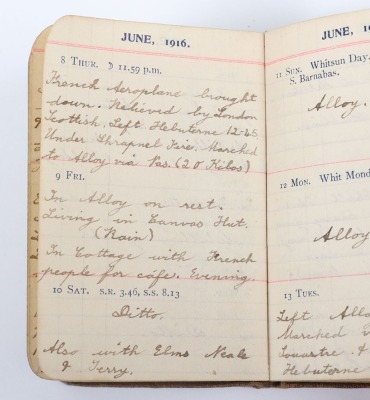 JUNE, 1916.
8 THUR. ☽ 11.59 p.m.
French Aeroplane brought
down. Relieved by London
Scottish. Left Hebuterne 12-45
Under Shrapnel Fire. Marched
to Alloy via Pas. (20 Kilos)
9 FRI.
In Alloy on rest.
Living in Canvas Hut.
(Rain)
In Cottage with French
people for cafe. Evening.
10 SAT. S.R. 3.46, S.S. 8.13
Ditto.
Also with Elms Neale
& Terry.
JUNE, 19
11 SUN. Whitsun Day.
S. Barnabas.
Alloy.
12 MON. Whit Mond
Alloy
13 TUES.
Left Allo
Marched
Louartre &
Hebuterne